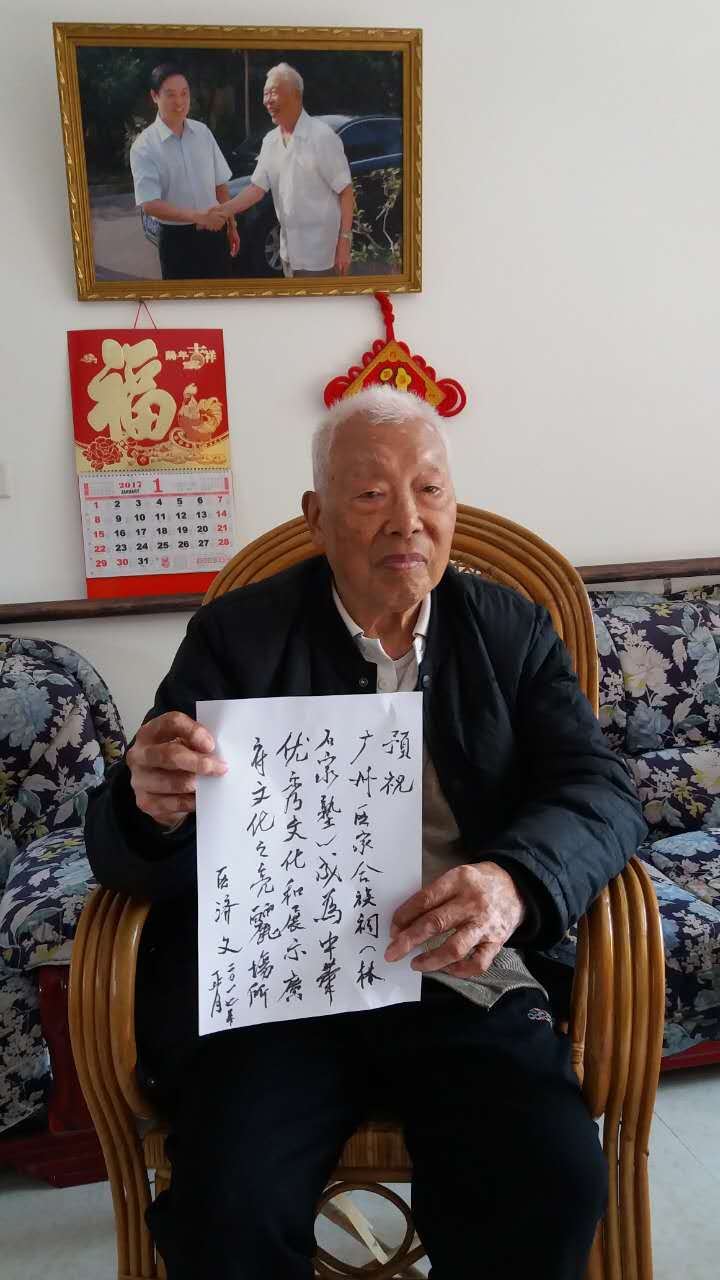 福
鸡年吉祥
2017 JANUARY 1
1 2 3 4 5 6 7
8 9 10 11 12 13 14
15 16 17 18 19 20 21
22 23 24 25 26 27 28
29 30 31
预祝
广州区家合族祠(林
石家塾)成為中華
优秀文化和展示廣
府文化之亮麗場所
区济文
二〇一七年
正月